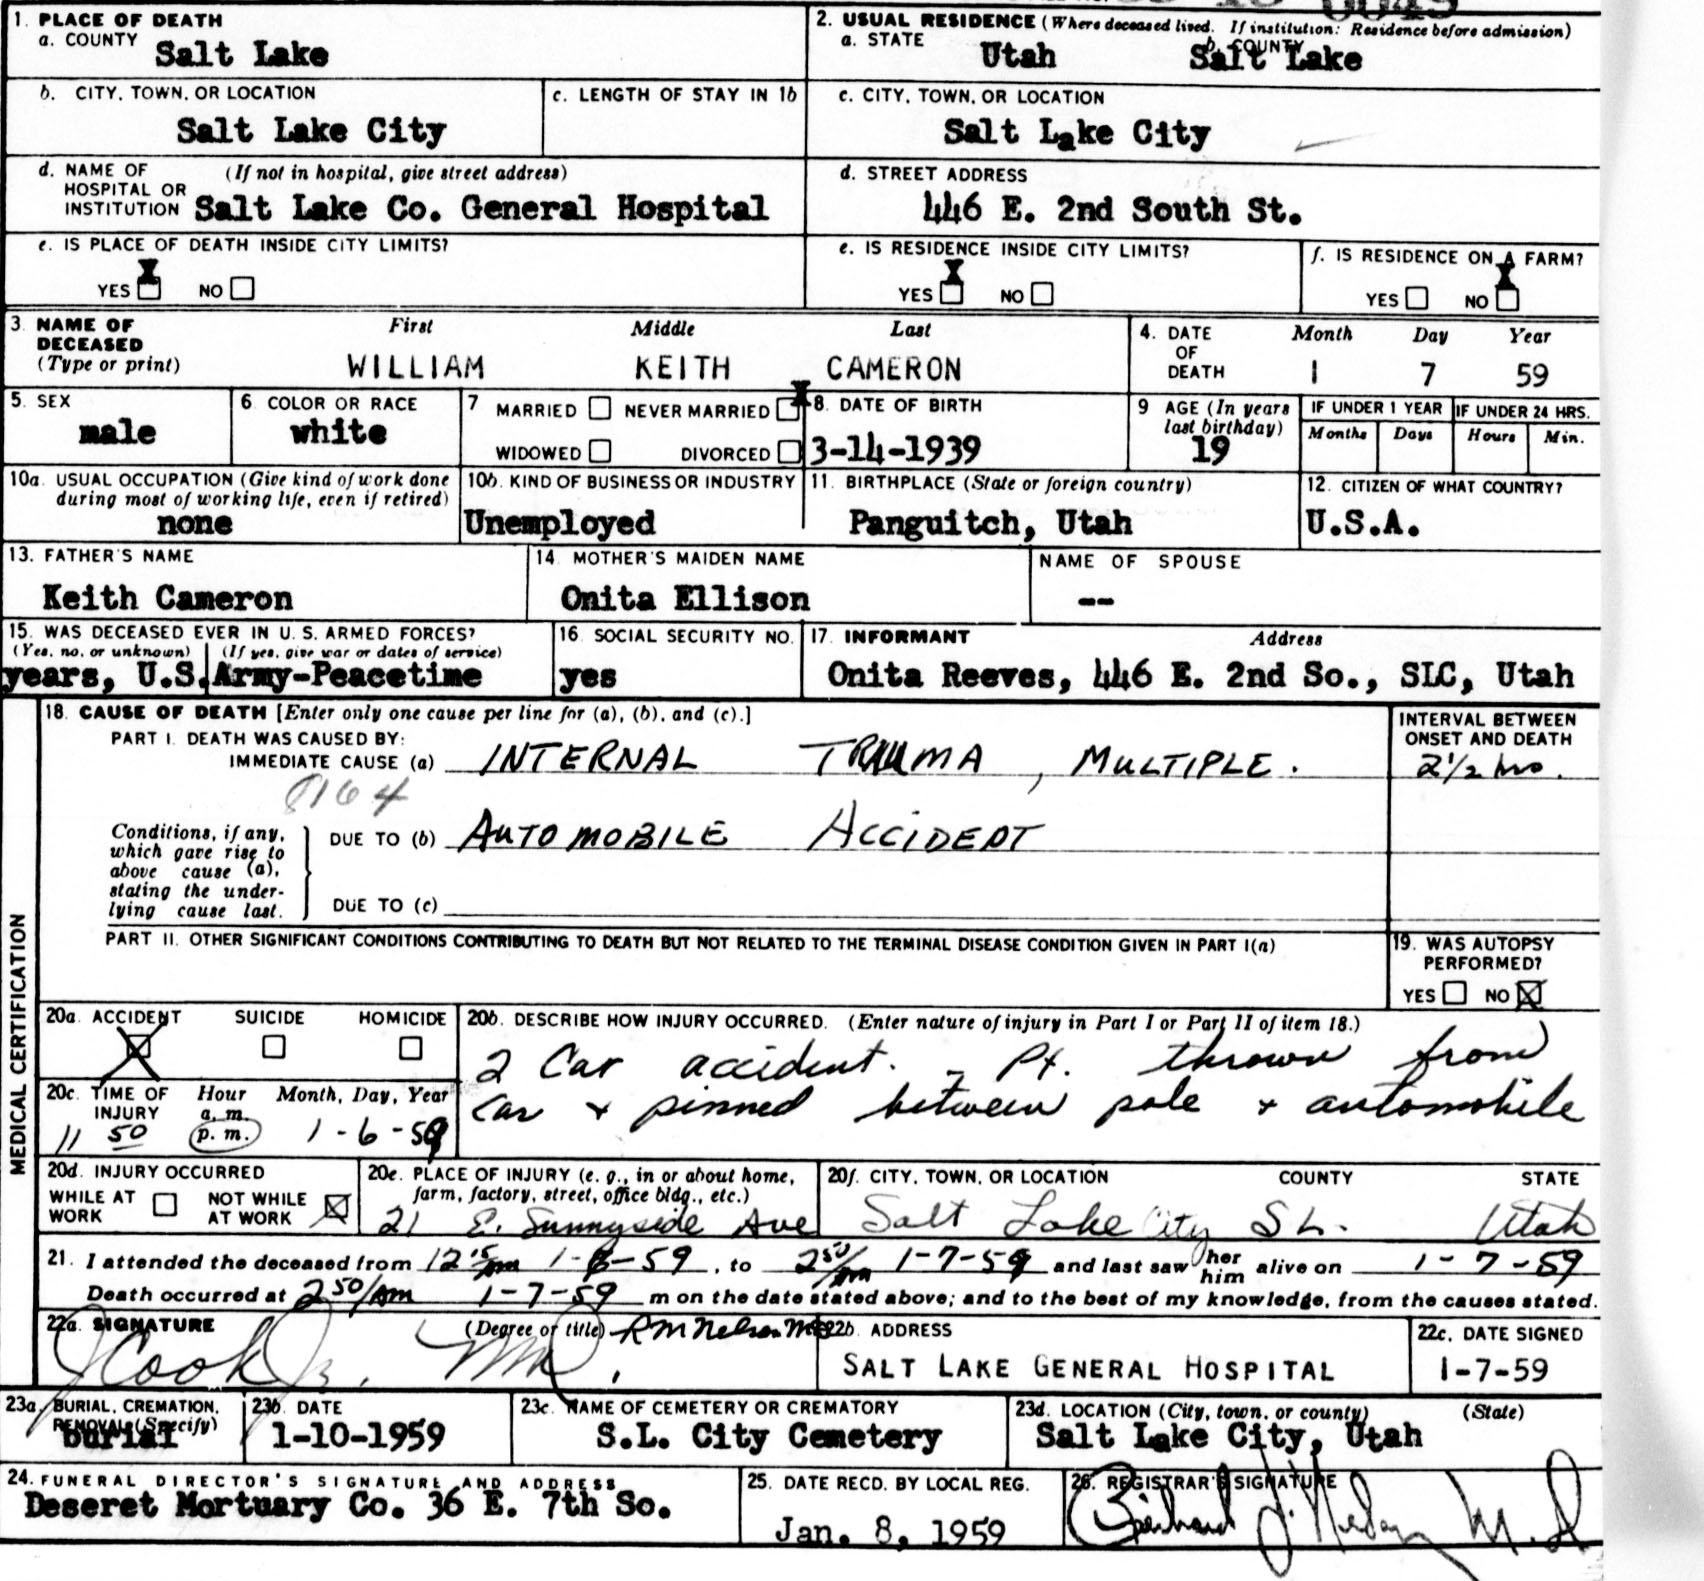 0049
1. PLACE OF DEATH
a. COUNTY
Salt Lake
2. USUAL RESIDENCE (Where deceased lived. If institution: Residence before admission)
a. STATE
Utah
b. COUNTY
Salt Lake
b. CITY, TOWN, OR LOCATION
Salt Lake City
c. LENGTH OF STAY IN 1b
c. CITY, TOWN, OR LOCATION
Salt Lake City
d. NAME OF HOSPITAL OR INSTITUTION
(If not in hospital, give street address)
Salt Lake Co. General Hospital
d. STREET ADDRESS
446 E. 2nd South St.
e. IS PLACE OF DEATH INSIDE CITY LIMITS?
YES X NO
e. IS RESIDENCE INSIDE CITY LIMITS?
YES X NO
f. IS RESIDENCE ON A FARM?
YES NO X
3. NAME OF DECEASED
(Type or print)
First Middle Last
WILLIAM KEITH CAMERON
4. DATE OF DEATH
Month Day Year
1 7 59
5. SEX
male
6. COLOR OR RACE
white
7 MARRIED NEVER MARRIED X
WIDOWED DIVORCED
8. DATE OF BIRTH
3-14-1939
9 AGE (In years last birthday)
19
IF UNDER 1 YEAR
Months Days
IF UNDER 24 HRS.
Hours Min.
10a. USUAL OCCUPATION (Give kind of work done
during most of working life, even if retired)
none
10b. KIND OF BUSINESS OR INDUSTRY
Unemployed
11. BIRTHPLACE (State or foreign country)
Panguitch, Utah
12. CITIZEN OF WHAT COUNTRY?
U.S.A.
13. FATHER'S NAME
Keith Cameron
14. MOTHER'S MAIDEN NAME
Onita Ellison
NAME OF SPOUSE
--
15. WAS DECEASED EVER IN U. S. ARMED FORCES?
(Yes, no, or unknown) (If yes, give war or dates of service)
years, U.S. Army-Peacetime
16. SOCIAL SECURITY NO.
yes
17. INFORMANT Address
Onita Reeves, 446 E. 2nd So., SLC, Utah
MEDICAL CERTIFICATION
18. CAUSE OF DEATH [Enter only one cause per line for (a), (b), and (c).]
PART I. DEATH WAS CAUSED BY:
IMMEDIATE CAUSE (a) INTERNAL TRAUMA, MULTIPLE.
INTERVAL BETWEEN
ONSET AND DEATH
2 1/2 hrs.
Conditions, if any,
which gave rise to
above cause (a),
stating the under-
lying cause last.
DUE TO (b) AUTOMOBILE ACCIDENT
DUE TO (c)
PART II. OTHER SIGNIFICANT CONDITIONS CONTRIBUTING TO DEATH BUT NOT RELATED TO THE TERMINAL DISEASE CONDITION GIVEN IN PART I(a)
19. WAS AUTOPSY
PERFORMED?
YES NO X
20a. ACCIDENT SUICIDE HOMICIDE
X
20b. DESCRIBE HOW INJURY OCCURRED. (Enter nature of injury in Part I or Part II of item 18.)
2 Car accident. - Pt. thrown from
car & pinned between pole & automobile
20c. TIME OF INJURY
Hour Month, Day, Year
a. m.
p. m.
11 50 1-6-59
20d. INJURY OCCURRED
WHILE AT WORK NOT WHILE AT WORK X
20e. PLACE OF INJURY (e. g., in or about home,
farm, factory, street, office bldg., etc.)
21 E. Sunnyside Ave
20f. CITY, TOWN, OR LOCATION COUNTY STATE
Salt Lake City S L. Utah
21. I attended the deceased from 12 15 am 1-8-59, to 2 50/am 1-7-59 and last saw her him alive on 1-7-59
Death occurred at 2 50/am 1-7-59 m on the date stated above; and to the best of my knowledge, from the causes stated.
22a. SIGNATURE (Degree or title) R M Nelson MD
J Cook Jr. MD.
22b. ADDRESS
SALT LAKE GENERAL HOSPITAL
22c. DATE SIGNED
1-7-59
23a. BURIAL, CREMATION,
REMOVAL (Specify)
burial
23b. DATE
1-10-1959
23c. NAME OF CEMETERY OR CREMATORY
S.L. City Cemetery
23d. LOCATION (City, town, or county) (State)
Salt Lake City, Utah
24. FUNERAL DIRECTOR'S SIGNATURE AND ADDRESS
Deseret Mortuary Co. 36 E. 7th So.
25. DATE RECD. BY LOCAL REG.
Jan. 8, 1959
26. REGISTRAR'S SIGNATURE